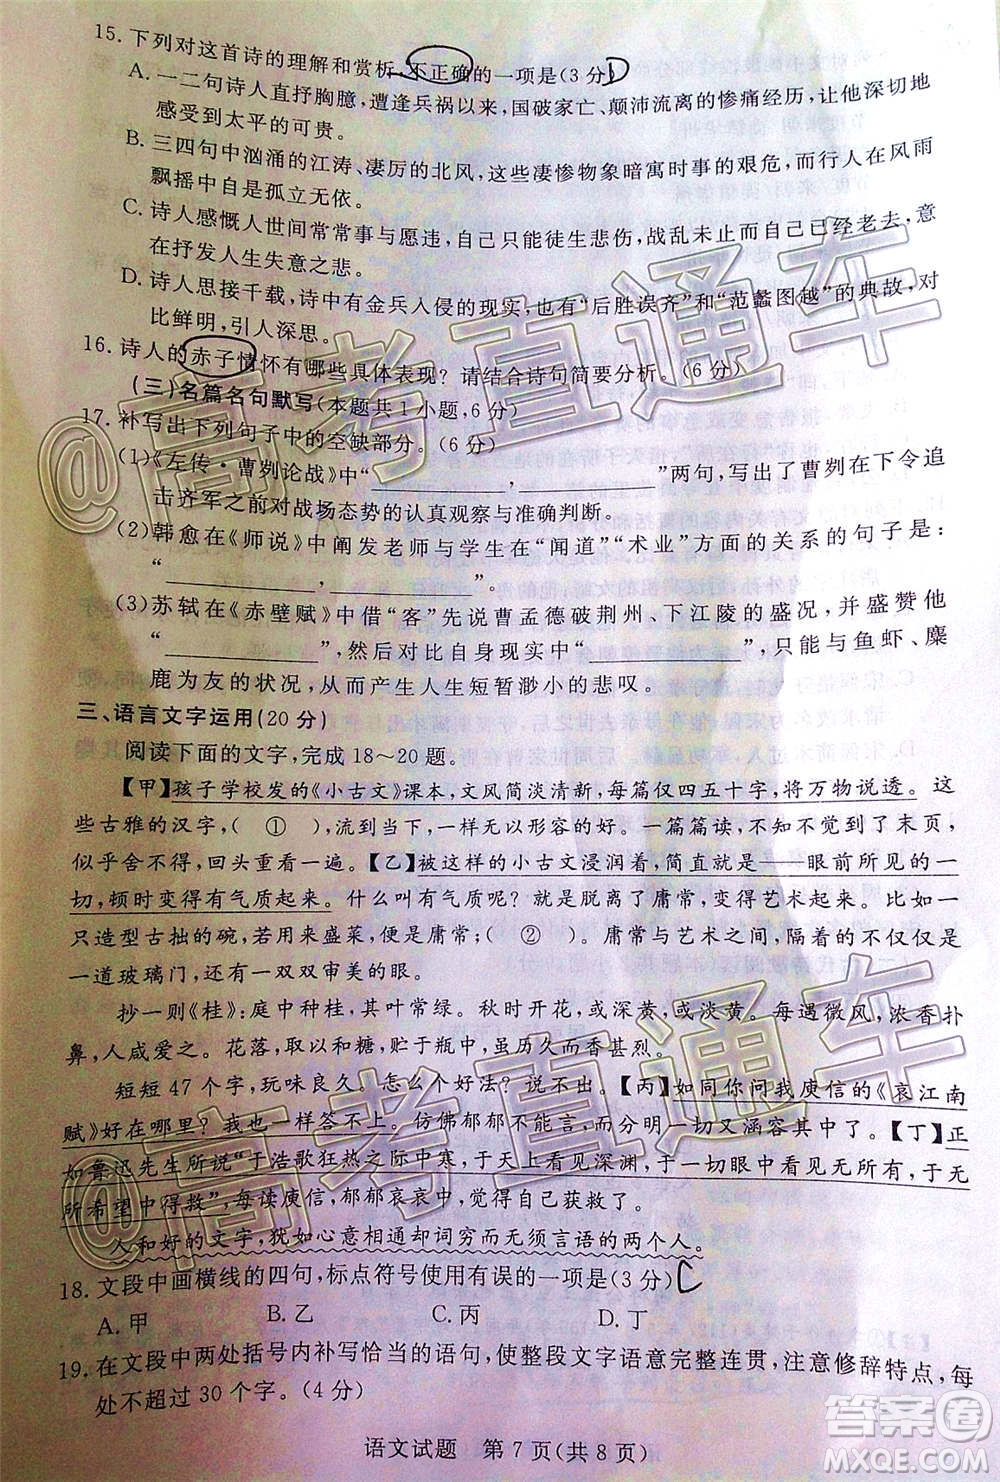 15. 下列对这首诗的理解和赏析,不正确的一项是(3分)
A. 一二句诗人直抒胸臆,遭逢兵祸以来,国破家亡、颠沛流离的惨痛经历,让他深切地
感受到太平的可贵。
B. 三四句中汹涌的江涛、凄厉的北风,这些凄惨物象暗寓时事的艰危,而行人在风雨
飘摇中自是孤立无依。
C. 诗人感慨人世间常常事与愿违,自己只能徒生悲伤,战乱未止而自己已经老去,意
在抒发人生失意之悲。
D. 诗人思接千载,诗中有金兵入侵的现实,也有“后胜误齐”和“范蠡图越”的典故,对
比鲜明,引人深思。
16. 诗人的赤子情怀有哪些具体表现?请结合诗句简要分析。(6分)
(三)名篇名句默写(本题共1小题,6分)
17. 补写出下列句子中的空缺部分。(6分)
(1)《左传·曹刿论战》中“________,________”两句,写出了曹刿在下令追
击齐军之前对战场态势的认真观察与准确判断。
(2)韩愈在《师说》中阐发老师与学生在“闻道”“术业”方面的关系的句子是:
“________,________”。
(3)苏轼在《赤壁赋》中借“客”先说曹孟德破荆州、下江陵的盛况,并盛赞他
“________”,然后对比自身现实中“________”,只能与鱼虾、麋
鹿为友的状况,从而产生人生短暂渺小的悲叹。
三、语言文字运用(20分)
阅读下面的文字,完成18~20题。
【甲】孩子学校发的《小古文》课本,文风简淡清新,每篇仅四五十字,将万物说透。这
些古雅的汉字,( ① ),流到当下,一样无以形容的好。一篇篇读,不知不觉到了末页,
似乎舍不得,回头重看一遍。【乙】被这样的小古文浸润着,简直是——眼前所见的一
切,顿时变得有气质起来。什么叫有气质?就是脱离了庸常,变得艺术起来。比如一
只造型古拙的碗,若用来盛菜,便属于庸常;( ② )。庸常与艺术之间,隔着的不过是
一道玻璃门,还有一双双审美的眼。
抄一则《桂》:庭中种桂,其叶常绿。秋时开花,或深黄,或淡黄。每遇微风,浓香扑
鼻,人咸爱之。花落,取以和糖,贮于瓶中,虽历久而香甚烈。
短短47个字,玩味良久。怎么个好法?说不出。【丙】如同你问我庾信的《哀江南
赋》好在哪里?我也一样答不上。仿佛郁郁不能言,分明一切又涵容其中了。【丁】正
如鲁迅先生所说“于浩歌狂热之际中寒,于天上看见深渊,于一切眼中看见无所有,于无
所希望中得救”,每读庾信,郁郁哀哀中,觉得自己获救了。
人和好的文字,犹如心意相通却无须言语的两个人。
18. 文段中画横线的四句,标点符号使用有误的一项是(3分) C
A. 甲 B. 乙 C. 丙 D. 丁
19. 在文段中两处括号内补写恰当的语句,使整段文字语意完整连贯,注意修辞特点,每
处不超过30个字。(4分)
语文试题 第7页(共8页)
@高考直通车
@高考直通车
答案圈
MXQE.COM